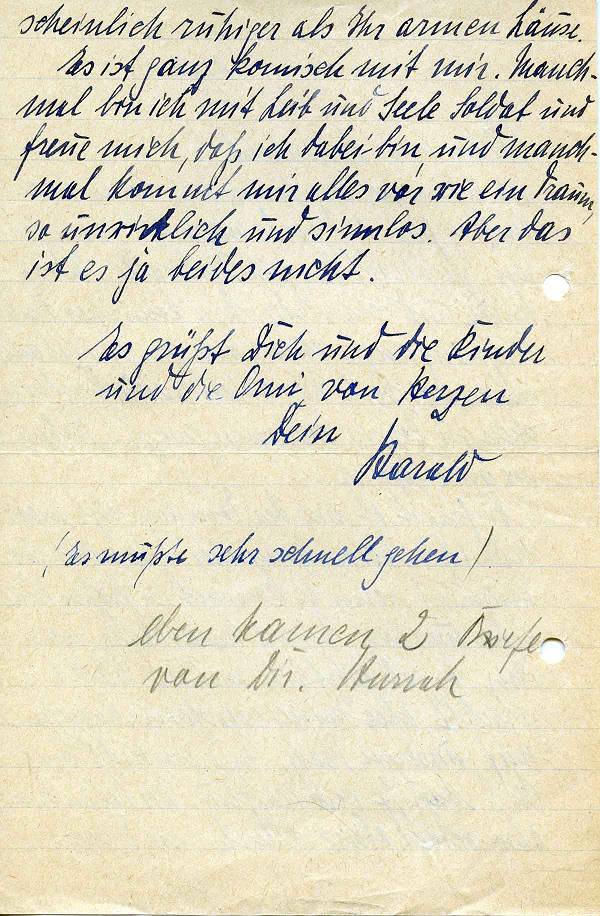 scheinlich ruhiger als Ihr armen Läuse.
Es ist ganz komisch mit mir. Manch-
mal bin ich mit Leib und Seele Soldat und
freue mich, daß ich dabei bin, und manch-
mal kommt mir alles vor wie ein Traum,
so unwirklich und sinnlos. Aber das
ist es ja beides nicht.
Es grüßt Dich und die Kinder
und die Omi von Herzen
Dein
Harald
(Es mußte sehr schnell gehen)
eben kamen 2 Briefe
von Dir. Hurrah